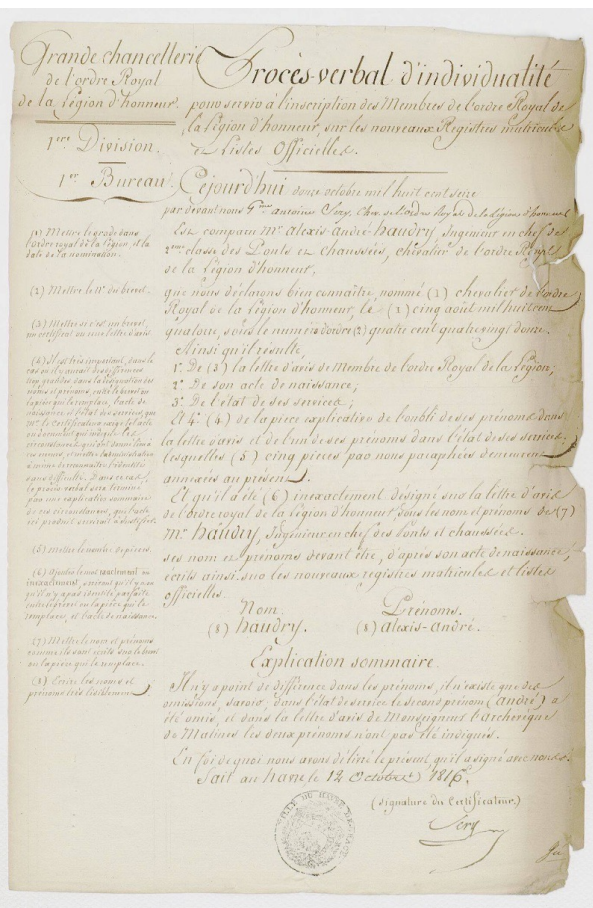 Grande chancellerie
de l'ordre Royal
de la Légion d'honneur.
1ere Division.
1er Bureau.
Procès-verbal d'individualité
pour servir à l'inscription des Membres de l'ordre Royal de
la Légion d'honneur, sur les nouveaux Registres matricules
et Listes Officielles.
Cejourd'hui douze octobre mil huit cent seize
par devant nous Gme antoine Sery, Cher de l'ordre Royal de la légion d'honneur
Est comparu Mr alexis-andré haudry Ingénieur en chef de
2eme classe des Ponts et chaussées, chevalier de l'ordre Royal
de la Légion d'honneur,
que nous déclarons bien connaître, nommé (1) chevalier de l'ordre
Royal de la Légion d'honneur, le (1) cinq août mil huit cent
quatorze, sous le numéro d'ordre (2) quatre cent quatre vingt douze.
Ainsi qu'il résulte,
1o De (3) la lettre d'avis de Membre de l'ordre Royal de la Légion;
2o De son acte de naissance;
3o De l'état de ses services;
Et 4o (4) de la pièce explication de l'oubli de ses prénoms dans
la lettre d'avis et de l'un de ses prénoms dans l'état de ses services.
lesquelles (5) cinq pièces par nous paraphées demeurent
annexées au présent.
Et qu'il a été (6) inexactement désigné sur la lettre d'avis
de l'ordre royal de la Légion d'honneur, sous les nom et prénoms de (7)
Mr haudry, Ingénieur en chef des Ponts et chaussées.
ses nom et prénoms devant être, d'après son acte de naissance,
écrits ainsi sur les nouveaux registres matricules et listes
officielles.
Nom. Prénoms.
(8) haudry. (8) alexis-andré.
Explication sommaire.
Il n'y a point de différence dans les prénoms, il n'existe que des
omissions, savoir; dans l'état de service le second prénom (andré) a
été omis, et dans la lettre d'avis de Monseigneur l'archevêque
de Malines les deux prénoms n'ont pas été indiqués.
En foi de quoi nous avons délivré le présent qu'il a signé avec nous.
Fait au havre le 12 Octobre 1816.
(signature du Certificateur.)
Sery
(1) Mettre le grade dans
l'ordre royal de la Légion, et la
date de la nomination.
(2) Mettre le No du brevet.
(3) Mettre si c'est un brevet,
un certificat ou une lettre d'avis.
(4) Il est très important, dans le
cas où il y aurait des différences
dans la désignation des
noms et prénoms, entre le brevet ou
la pièce qui le remplace, l'acte de
naissance et l'état des services, que
Mr le Certificateur exige tel acte
ou document qui indique les
circonstances qui ont donné lieu à
ces erreurs, et mettre l'administration
à même de reconnaître l'identité
sans difficulté. Dans ce cas,
le procès verbal sera terminé
par une explication sommaire
de ces circonstances, que l'acte
produit servirait à justifier.
(5) mettre le nombre de pièces.
(6) Ajouter le mot exactement ou
inexactement, suivant qu'il y a ou
qu'il n'y a pas identité parfaite
entre le brevet ou la pièce qui le
remplace, et l'acte de naissance.
(7) Mettre le nom et prénoms
comme ils sont écrits sur le brevet
ou la pièce qui le remplace.
(8) Ecrire les noms et
prénoms très lisiblement
VILLE DU HAVRE